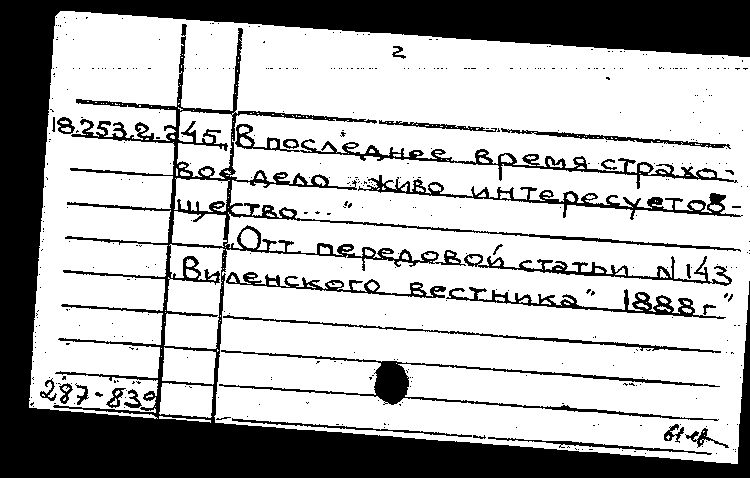 2
18.253.2.245. „В последнее время страхо-
вое дело живо интересует об-
щество..."
„Отт передовой статьи N 143
„Виленского вестника" 1888 г"
287-83°